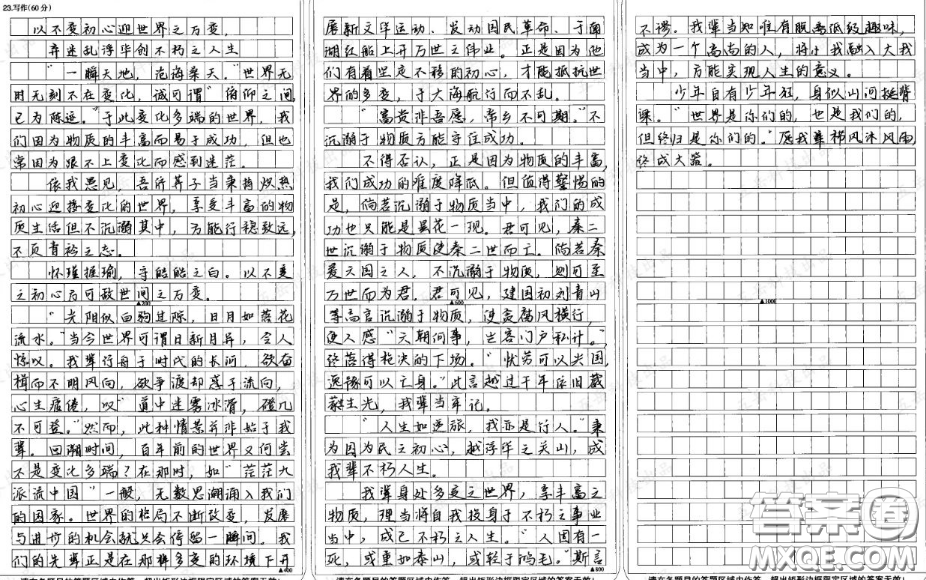 23.写作(60分)
以不变初心迎世界之万变,
弃迷乱浮华创不朽之人生
“一瞬天地,沧海桑天。”世界无
时无刻不在变化,诚可谓“俯仰之间,
已为陈迹。”于此变化多端的世界,我
们因为物质的丰富而易于成功,但也
常因为跟不上变化而感到迷茫。
依我愚见,吾所养子当秉持炽热
初心迎接变化的世界,享受丰富的物
质生活但不沉溺其中,方能行稳致远,
不负青衿之志。
怀瑾握瑜,守皓皓之白。以不变
之初心方可敌世间之万变。
“光阴似白驹过隙,日月如落花
流水。”当今世界可谓日新月异,令人
惊叹。我辈行舟于时代的长河,欲奋
楫而不明风向,欲争渡却惑于流向,
心生疲倦,叹“道中迷雾冰滑,磴几
不可登。”然而,此种情景并非始于我
辈。回溯时间,百年前的世界又何尝
不是变化多端?在那时,如“茫茫九
派流中国”一般,无数思潮涌入我们
的国家。世界的格局不断改变,发展
与进步的机会就只会停留一瞬间。我
们的先辈正是在那样多变的环境下开
▲200
▲400
展新文华运动、发动国民革命、于南
湖红船上开万世之伟业。正是因为他
们有着坚定不移的初心,才能抵抗世
界的多变,于大海航行而不乱。
“富贵非吾愿,帝乡不可期。”不
沉溺于物质方能守住成功。
不得否认,正是因为物质的丰富,
我们成功的难度降低。但值得警惕的
是,倘若沉溺于物质当中,我们的成
功也只能是昙花一现。君可见,秦二
世沉溺于物质使秦二世而亡。倘若秦
爱六国之人,不沉溺于物质,则可至
万世而为君。君可见,建国初刘青山
等高官沉溺于物质,使贪腐风横行,
使人感“天朝何事,岂容门户私计。”
终落得枪决的下场。“忧劳可以兴国,
逸豫可以亡身。”此言越过千年依旧葳
蕤生光,我辈当牢记。
“人生如逆旅,我亦是行人。”秉
为国为民之初心,越浮华之关山,成
我辈不朽人生。
我辈身处多变之世界,享丰富之
物质,理当将自我投身于不朽之事业
当中,成己不朽之人生。“人固有一
死,或重如泰山,或轻于鸿毛。”斯言
▲600
▲800
不谬。我辈当知唯有脱离低级趣味,
成为一个高尚的人,将小我融入大我
当中,方能实现人生的意义。
少年自有少年狂,身似山河挺脊
梁。“世界是你们的,也是我们的,
但终归是你们的。”愿我辈栉风沐风雨,
终成大器。
▲1000
答案圈